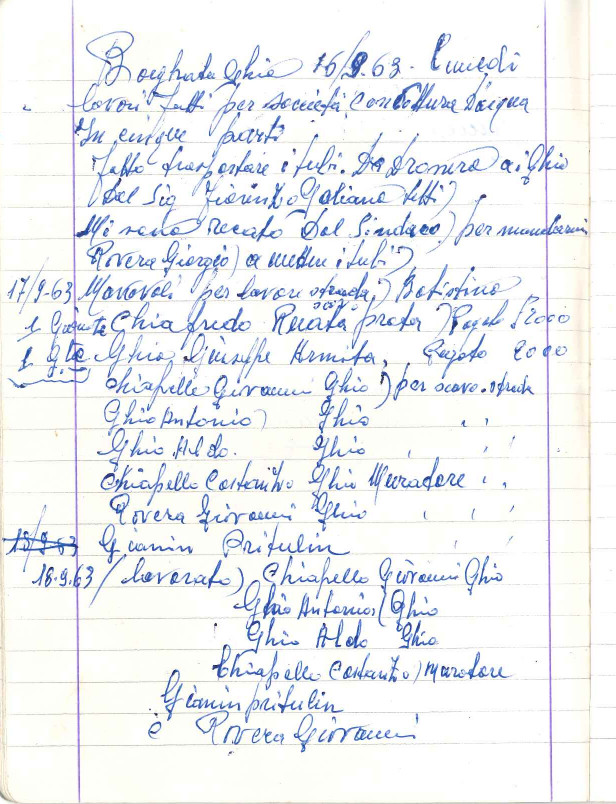 Borghata Ghio 16/9.63 - Lunedi
lavori fatti per società Condottura D'aqua
In cinque parti
Fatto trasportare i tubi. Da Dronero ai Ghio
Dal Sig Fiorenzo Galiano tetti)
Mi sono recato Dal Sindaco) per
Rovera Giorgio) a mettere i tubi)
17/9-63 Manovali per lavori strada) Batistino
scavo
1 Giornata Chiafredo Ruata prata) Pagato 2000
1 G.te Ghio Giuseppe Armita, Pagato 2000
Chiapello Giovanni Ghio) per scavo-strada
Ghio Antonio) Ghio , ,
Ghio Aldo. Ghio , , ,
Chiapello Costantino Ghio Muradore , ,
Rovera Giovanni Ghio , , ,
18/9-63 Gianin Pritulin , ,
18.9.63 (lavorato) Chiapello Giovanni Ghio
Ghio Antonio (Ghio
Ghio Aldo Ghio
Chiapello Costantino) muratore
Gianin pritulin
è Rovera Giovanni